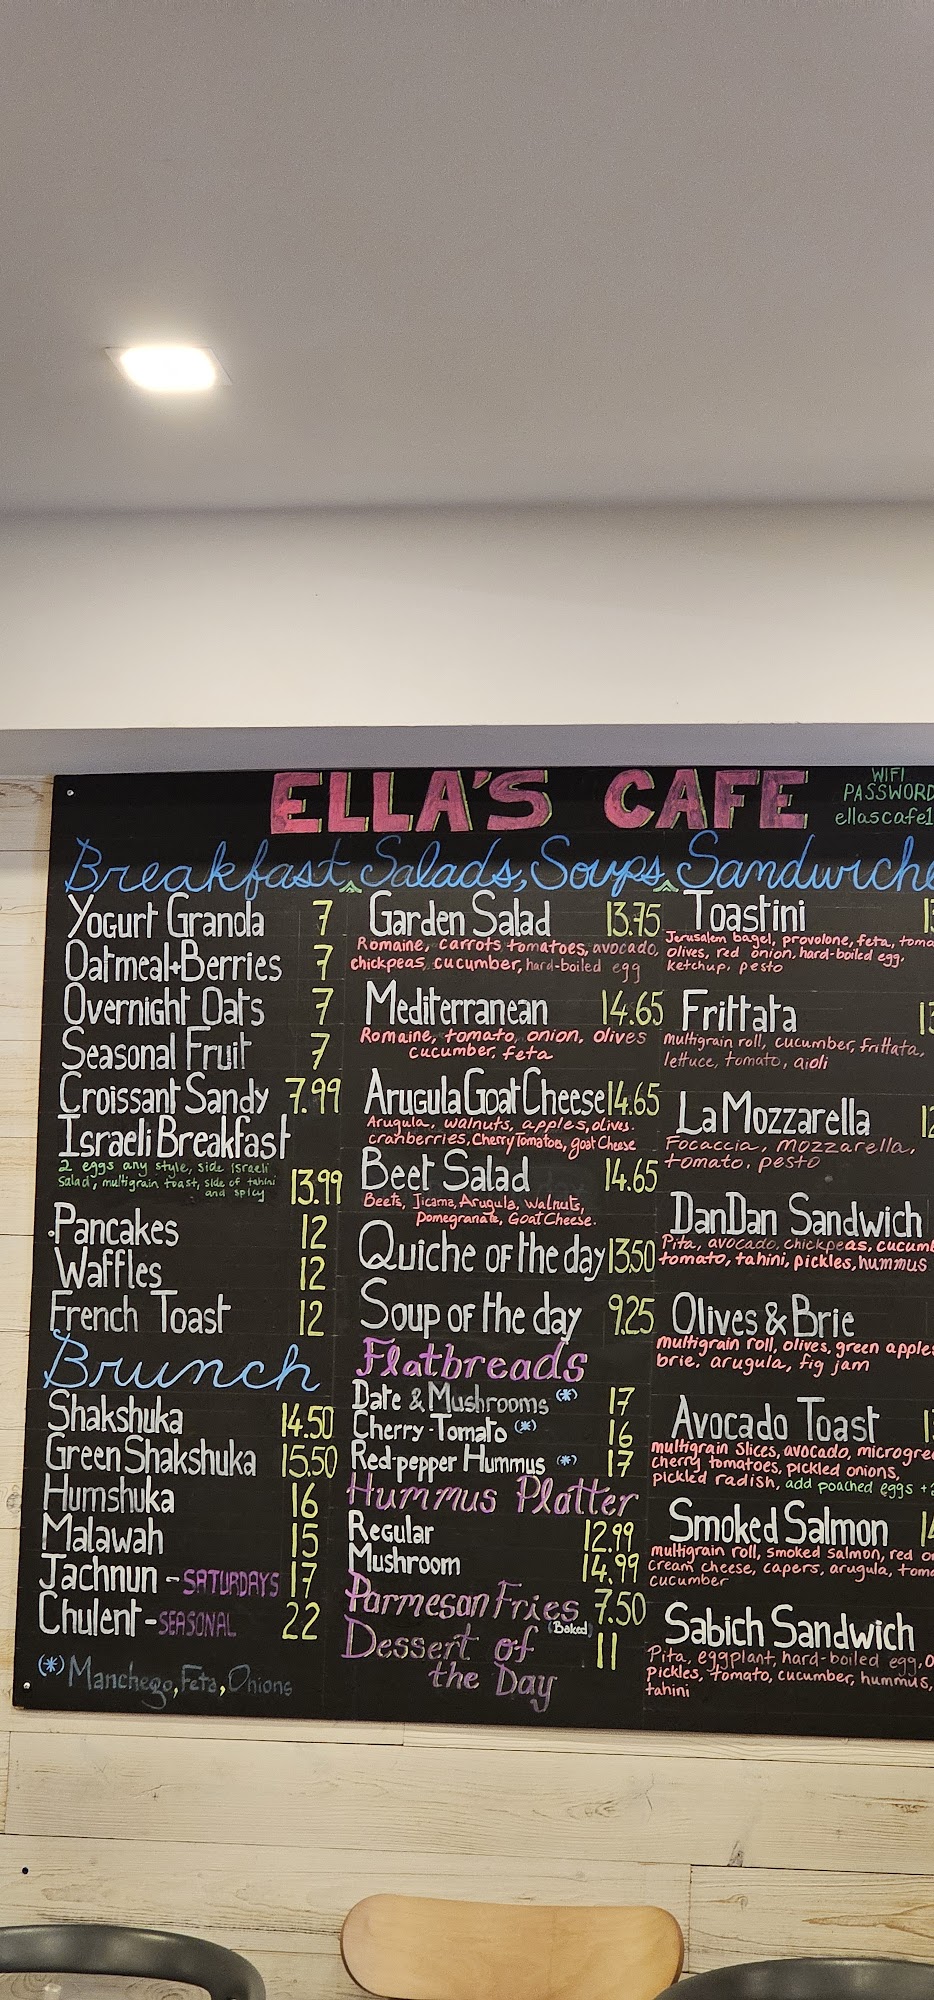 ELLA'S CAFE
WIFI
PASSWORD
ellascafe1
Breakfast, Salads, Soups, Sandwiche
Yogurt Granola 7
Oatmeal+Berries 7
Overnight Oats 7
Seasonal Fruit 7
Croissant Sandy 7.99
Israeli Breakfast
2 eggs any style, side Israeli
Salad, multigrain toast, side of tahini
and spicy 13.99
Pancakes 12
Waffles 12
French Toast 12
Brunch
Shakshuka 14.50
Green Shakshuka 15.50
Humshuka 16
Malawah 15
Jachnun - SATURDAYS 17
Chulent - SEASONAL 22
(*) Manchego, Feta, Onions
Garden Salad 13.75
Romaine, carrots tomatoes, avocado,
chickpeas, cucumber, hard-boiled egg
Mediterranean 14.65
Romaine, tomato, onion, olives
cucumber, feta
Arugula Goat Cheese 14.65
Arugula, walnuts, apples, olives.
cranberries, Cherry Tomatoes, goat Cheese
Beet Salad 14.65
Beets, Jicama, Arugula, Walnuts,
Pomegranate, Goat Cheese.
Quiche of the day 13.50
Soup of the day 9.25
Flatbreads
Date & Mushrooms (*) 17
Cherry-Tomato (*) 16
Red-pepper Hummus (*) 17
Hummus Platter
Regular 12.99
Mushroom 14.99
Parmesan Fries 7.50
(Baked)
Dessert of 11
the Day
Toastini
Jerusalem bagel, provolone, feta, toma
olives, red onion, hard-boiled egg,
ketchup, pesto
Frittata
multigrain roll, cucumber, frittata,
lettuce, tomato, aioli
La Mozzarella
Focaccia, mozzarella,
tomato, pesto
DanDan Sandwich
Pita, avocado, chickpeas, cucum
tomato, tahini, pickles, hummus
Olives & Brie
multigrain roll, olives, green apple
brie, arugula, fig jam
Avocado Toast
multigrain Slices, avocado, microgre
cherry tomatoes, pickled onions,
pickled radish, add poached eggs +
Smoked Salmon
multigrain roll, smoked salmon, red o
cream cheese, capers, arugula, toma
cucumber
Sabich Sandwich
Pita, eggplant, hard-boiled egg,
pickles, tomato, cucumber, hummus,
tahini